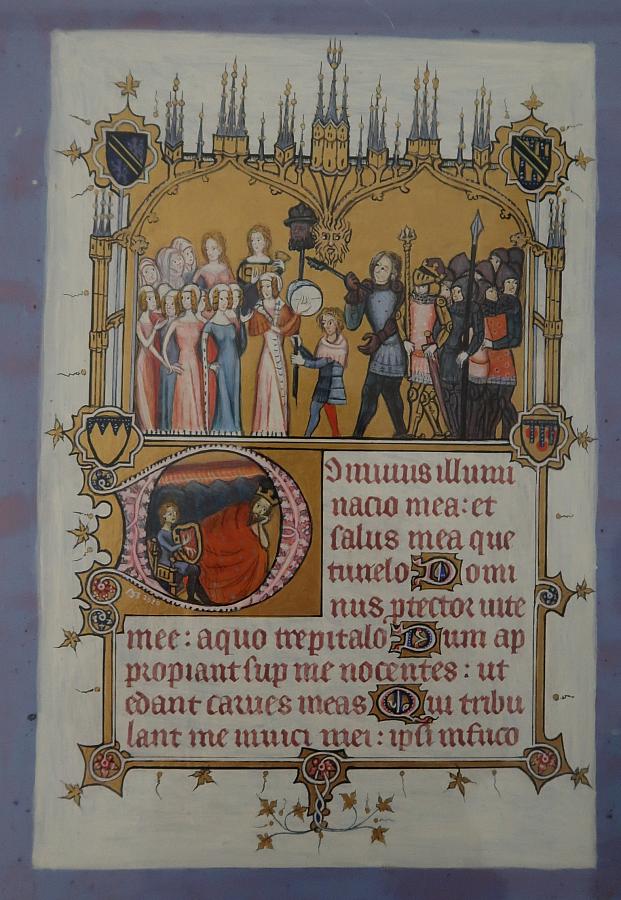 Ominus illumi
nacio mea: et
salus mea que
timebo Domi
nus ptector uite
mee: aquo trepitabo Dum ap
propiant sup me nocentes: ut
edant carnes meas Qui tribu
lant me inimici mei: ipsi